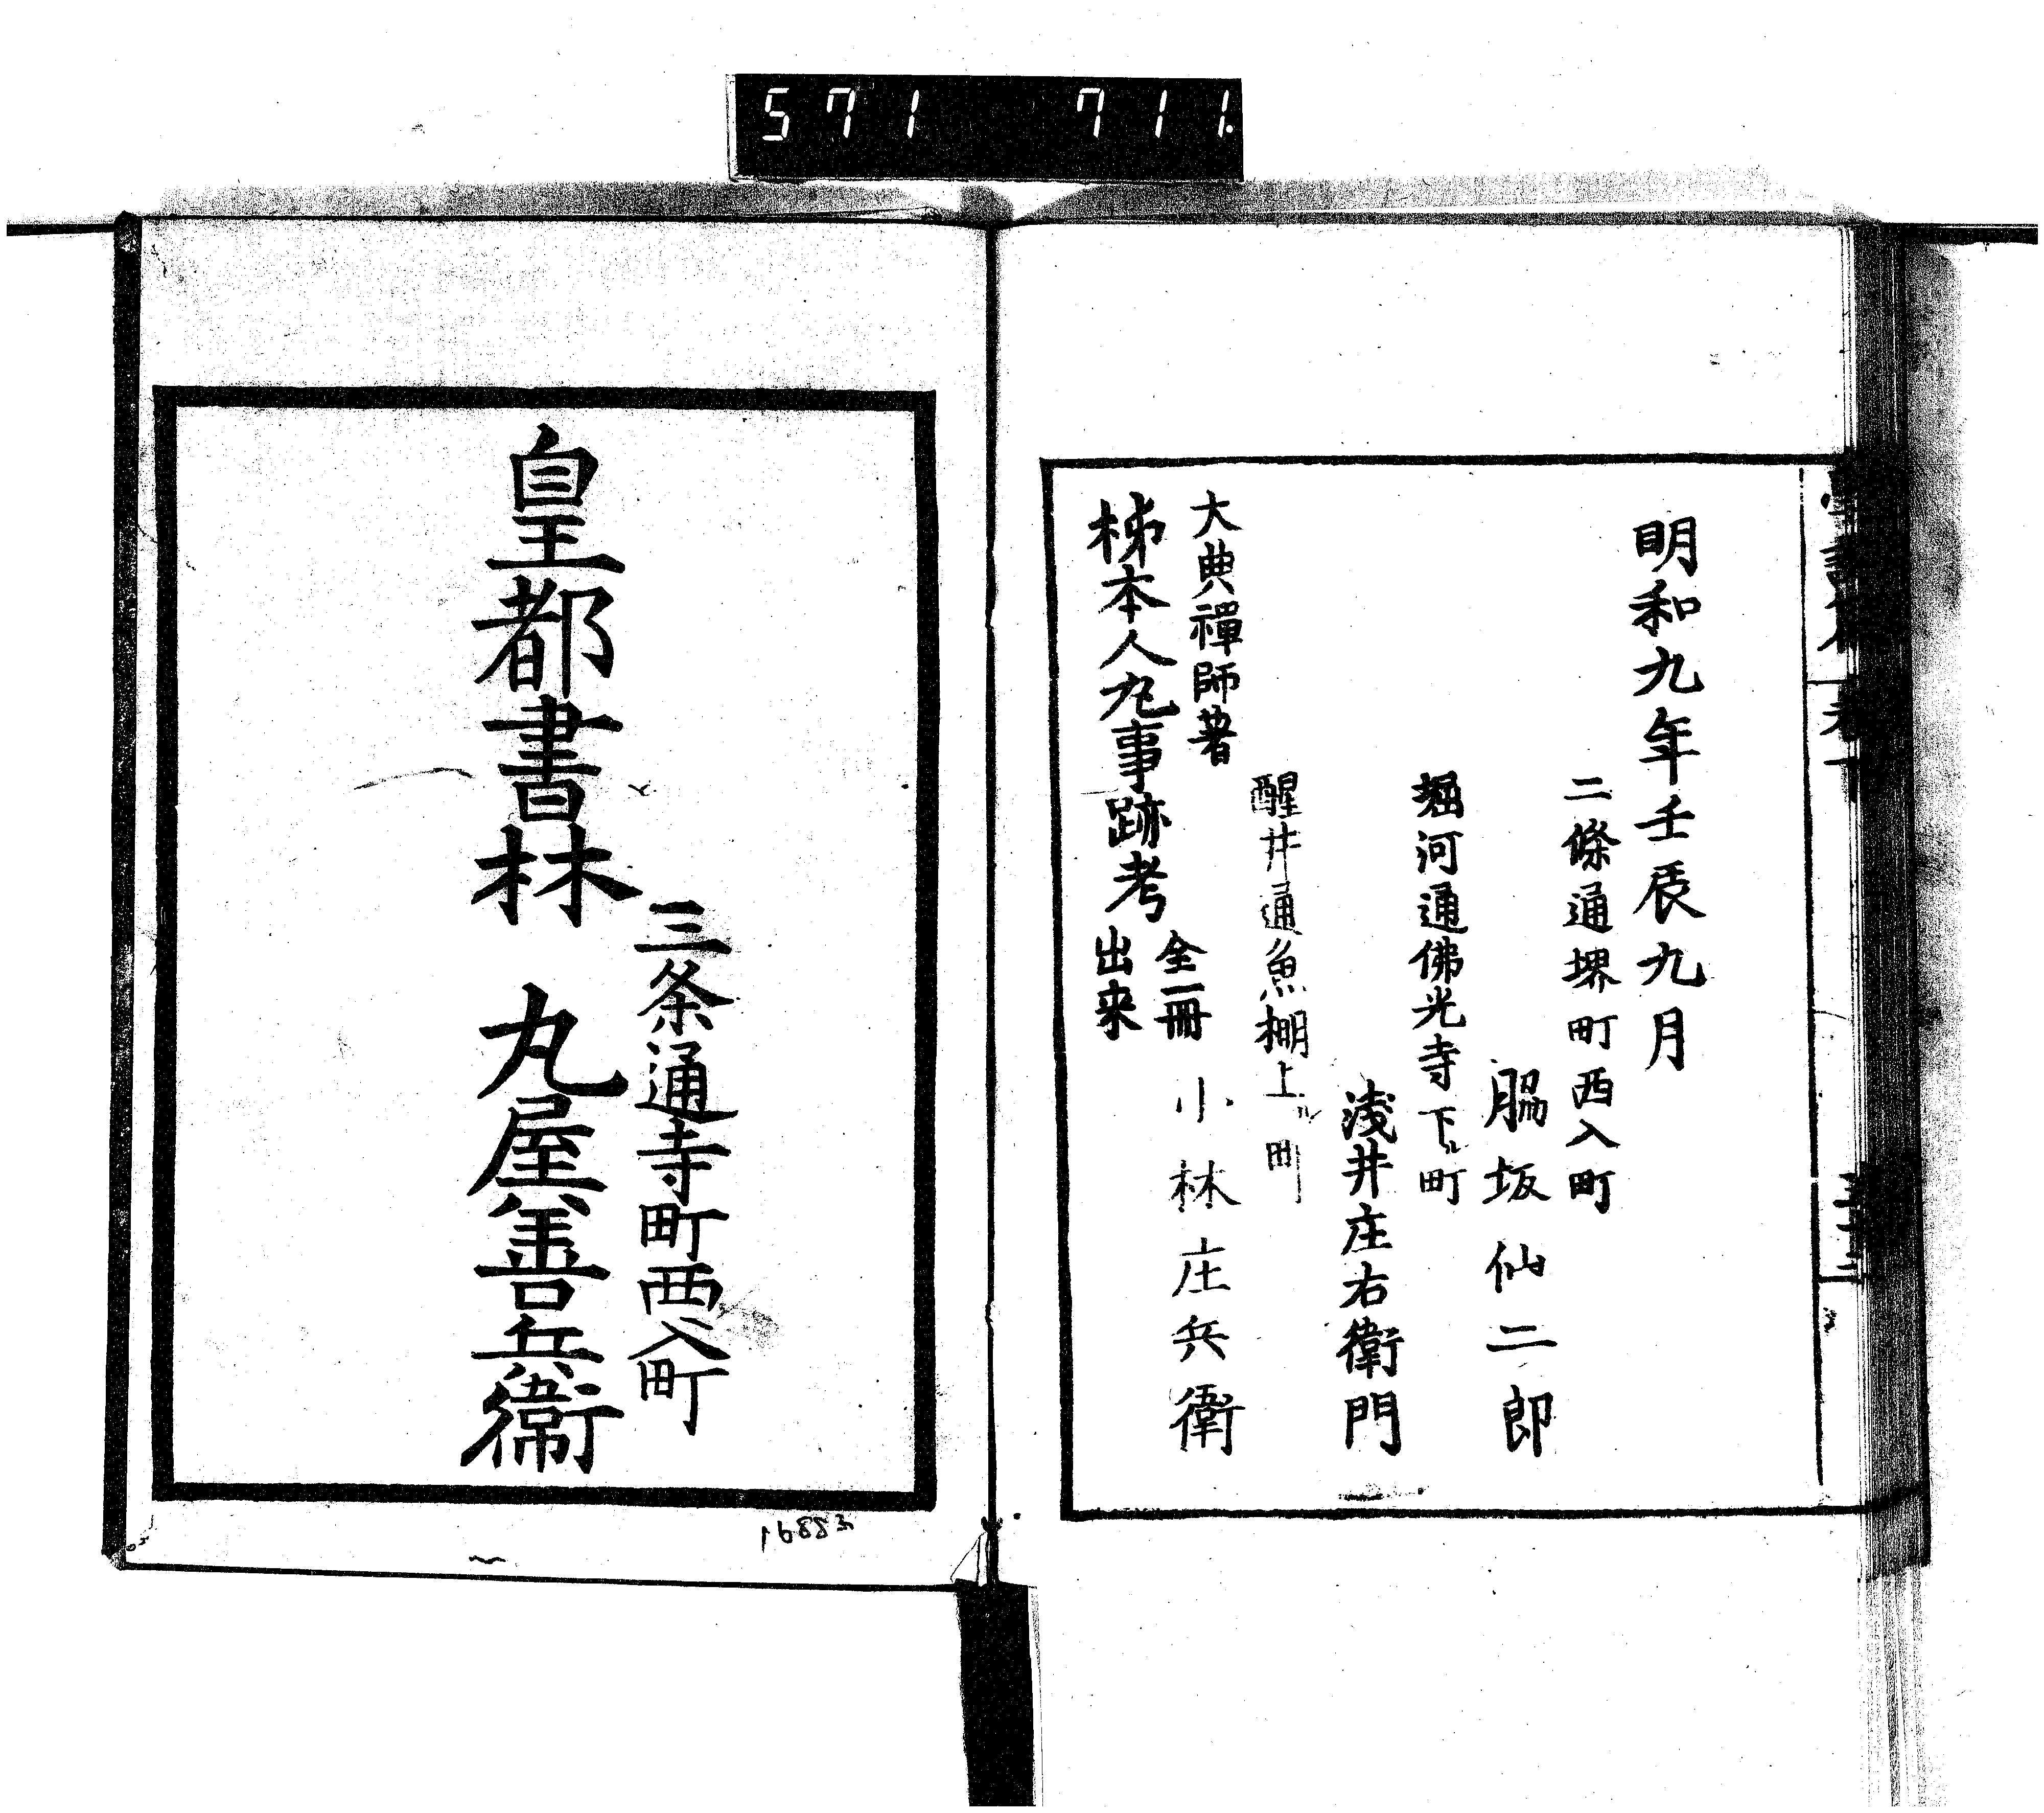 571 711
明和九年壬辰九月
二條通堺町西入町
脇坂仙二郎
堀河通佛光寺下ル町
淺井庄右衛門
醒井通魚棚上ル町
小林庄兵衛
大典禪師著
柹本人丸事跡考
全一冊
出来
三条通寺町西入町
皇都書林 丸屋善兵衞